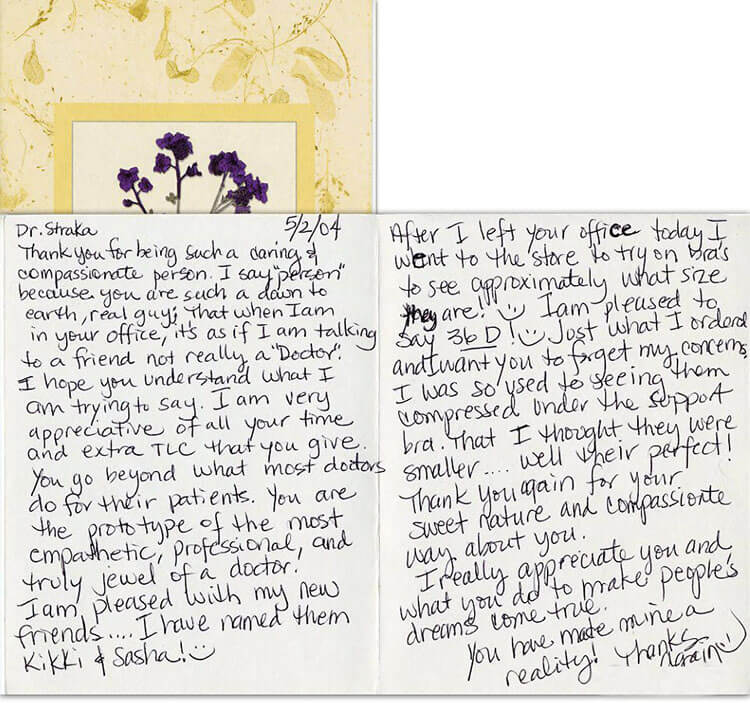 Dr. Straka 5/2/04
Thank you for being such a caring &
compassionate person. I say "person"
because you are such a down to
earth, real guy; that when I am
in your office, it's as if I am talking
to a friend not really a "Doctor".
I hope you understand what I
am trying to say. I am very
appreciative of all your time
and extra TLC that you give.
You go beyond what most doctors
do for their patients. You are
the prototype of the most
empathetic, professional, and
truly jewel of a doctor.
I am pleased with my new
friends.... I have named them
Kikki & Sasha!
After I left your office today I
went to the store to try on bra's
to see approximately what size
they are! I am pleased to
say 36 D! Just what I ordered
and I want you to forget my concerns,
I was so used to seeing them
compressed under the support
bra. That I thought they were
smaller.... well their perfect!
Thank you again for your
sweet nature and compassionte
way about you.
I really appreciate you and
what you do to make people's
dreams come true.
You have made mine a
reality! Thanks